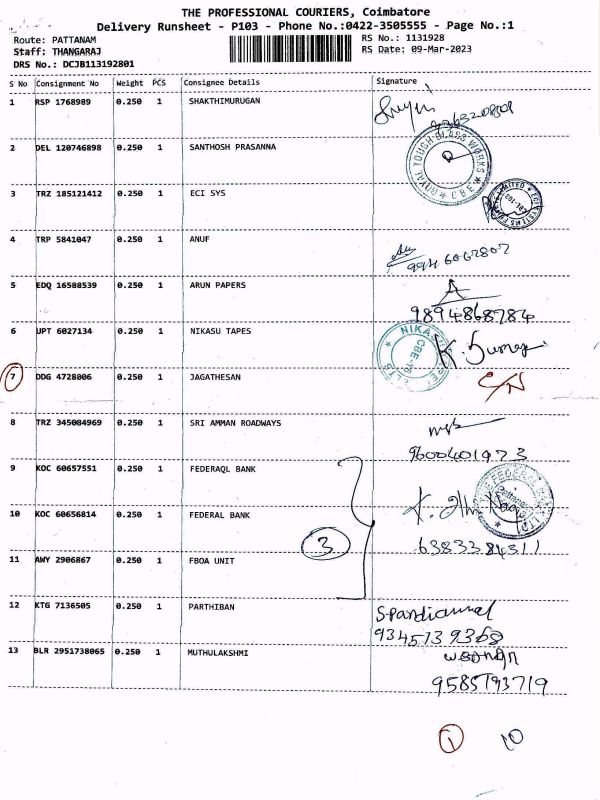 THE PROFESSIONAL COURIERS, Coimbatore
Delivery Runsheet - P103 - Phone No.:0422-3505555 - Page No.:1
Route: PATTANAM
RS No.: 1131928
Staff: THANGARAJ
RS Date: 09-Mar-2023
DRS No.: DCJB113192801
S No Consignment No Weight PCS Consignee Details Signature
1 RSP 1768989 0.250 1 SHAKTHIMURUGAN
2 DEL 120746898 0.250 1 SANTHOSH PRASANNA
ROYAL TOUGH GLASS WORKS
CBE
3 TRZ 185121412 0.250 1 ECI SYS
4 TRP 5841047 0.250 1 ANUF
9946062807
5 EDQ 16588539 0.250 1 ARUN PAPERS
A
9894868784
6 UPT 6027134 0.250 1 NIKASU TAPES
CBE-16
7 DDG 4728006 0.250 1 JAGATHESAN
C/N
8 TRZ 345084969 0.250 1 SRI AMMAN ROADWAYS
9600401973
9 KOC 60657551 0.250 1 FEDERAQL BANK
10 KOC 60656814 0.250 1 FEDERAL BANK
3
6383384311
11 AWY 2906867 0.250 1 FBOA UNIT
12 KTG 7136505 0.250 1 PARTHIBAN
9345139368
13 BLR 2951738065 0.250 1 MUTHULAKSHMI
9585193719
1 10